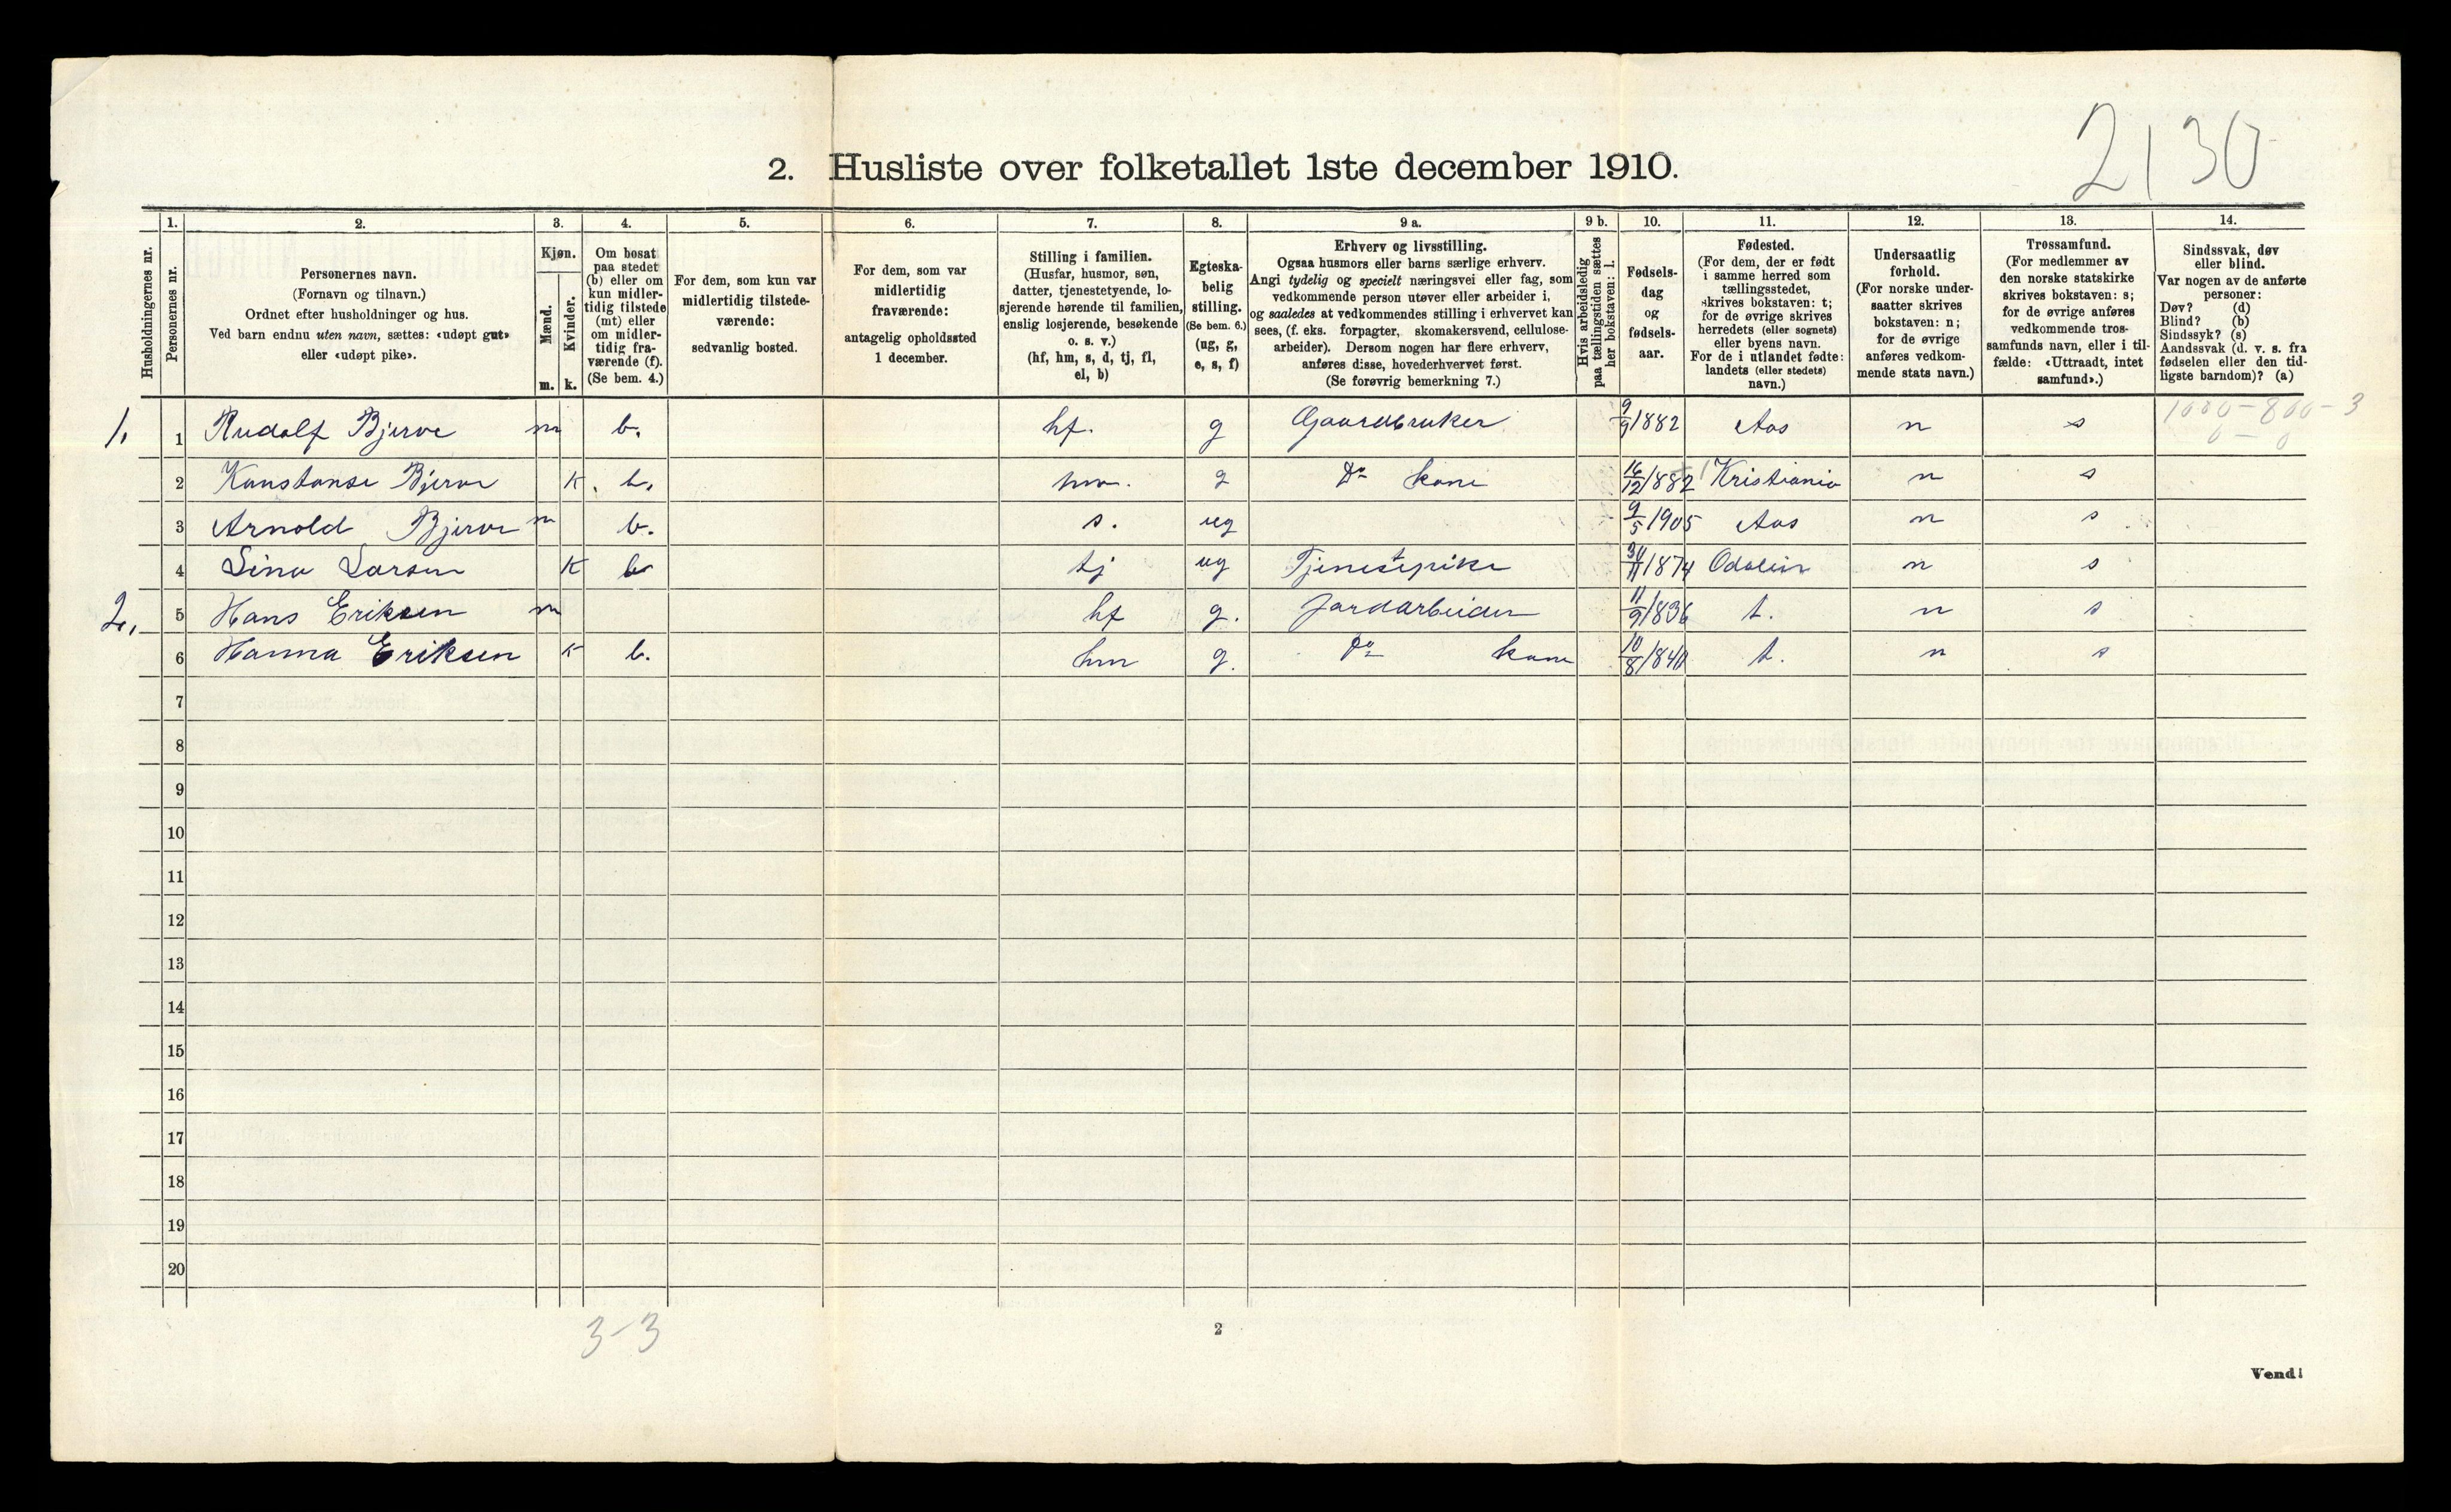 2130
2. Husliste over folketallet 1ste december 1910.
Husholdningernes nr.
1.
Personernes nr.
2.
Personernes navn.
(Fornavn og tilnavn.)
Ordnet efter husholdninger og hus.
Ved barn endnu uten navn, sættes: «udøpt gut»
eller «udøpt pike».
3.
Kjøn.
Mænd.
Kvinder.
m. k.
4.
Om bosat
paa stedet
(b) eller om
kun midler-
tidig tilstede
(mt) eller
om midler-
tidig fra-
værende (f).
(Se bem. 4.)
5.
For dem, som kun var
midlertidig tilstede-
værende:
sedvanlig bosted.
6.
For dem, som var
midlertidig
fraværende:
antagelig opholdssted
1 december.
7.
Stilling i familien.
(Husfar, husmor, søn,
datter, tjenestetyende, lo-
sjerende hørende til familien,
enslig losjerende, besøkende
o. s. v.)
(hf, hm, s, d, tj, fl,
el, b)
8.
Egteska-
belig
stilling.
(Se bem. 6.)
(ug, g,
e, s, f)
9 a.
Erhverv og livsstilling.
Ogsaa husmors eller barns særlige erhverv.
Angi tydelig og specielt næringsvei eller fag, som
vedkommende person utøver eller arbeider i,
og saaledes at vedkommendes stilling i erhvervet kan
sees, (f. eks. forpagter, skomakersvend, cellulose-
arbeider). Dersom nogen har flere erhverv,
anføres disse, hovederhvervet først.
(Se forøvrig bemerkning 7.)
9 b.
Hvis arbeidsledig
paa tællingstiden sættes
her bokstaven: l.
10.
Fødsels-
dag
og
fødsels-
aar.
11.
Fødested.
(For dem, der er født
i samme herred som
tællingsstedet,
skrives bokstaven: t;
for de øvrige skrives
herredets (eller sognets)
eller byens navn.
For de i utlandet fødte:
landets (eller stedets)
navn.)
12.
Undersaatlig
forhold.
(For norske under-
saatter skrives
bokstaven: n;
for de øvrige
anføres vedkom-
mende stats navn.)
13.
Trossamfund.
(For medlemmer av
den norske statskirke
skrives bokstaven: s;
for de øvrige anføres
vedkommende tros-
samfunds navn, eller i til-
fælde: «Uttraadt, intet
samfund».)
14.
Sindssvak, døv
eller blind.
Var nogen av de anførte
personer:
Døv? (d)
Blind? (b)
Sindssyk? (s)
Aandssvak (d. v. s. fra
fødselen eller den tid-
ligste barndom)? (a)
1000 - 800 - 3
0 - 0
1. 1 Rudolf Bjerve m b. hf. g Gaardbruker 9/9 1882 Aas n s
2 Konstanse Bjerve K. b. hm. g Do kone 16/12 1882 Kristiania n s
3 Arnold Bjerve m b. s. ug 9/5 1905 Aas n s
4 Lina Larsen K b tj ug Tjenestepike 1874 Odalen n s
2. 5 Hans Eriksen m hf g. Jordarbeider 11/9 1836 t. n s
6 Hanna Eriksen K b. hm g. Do kone 10/8 1840 t. n s
7
8
9
10
11
12
13
14
15
16
17
18
19
20
3-3
2
Vend!